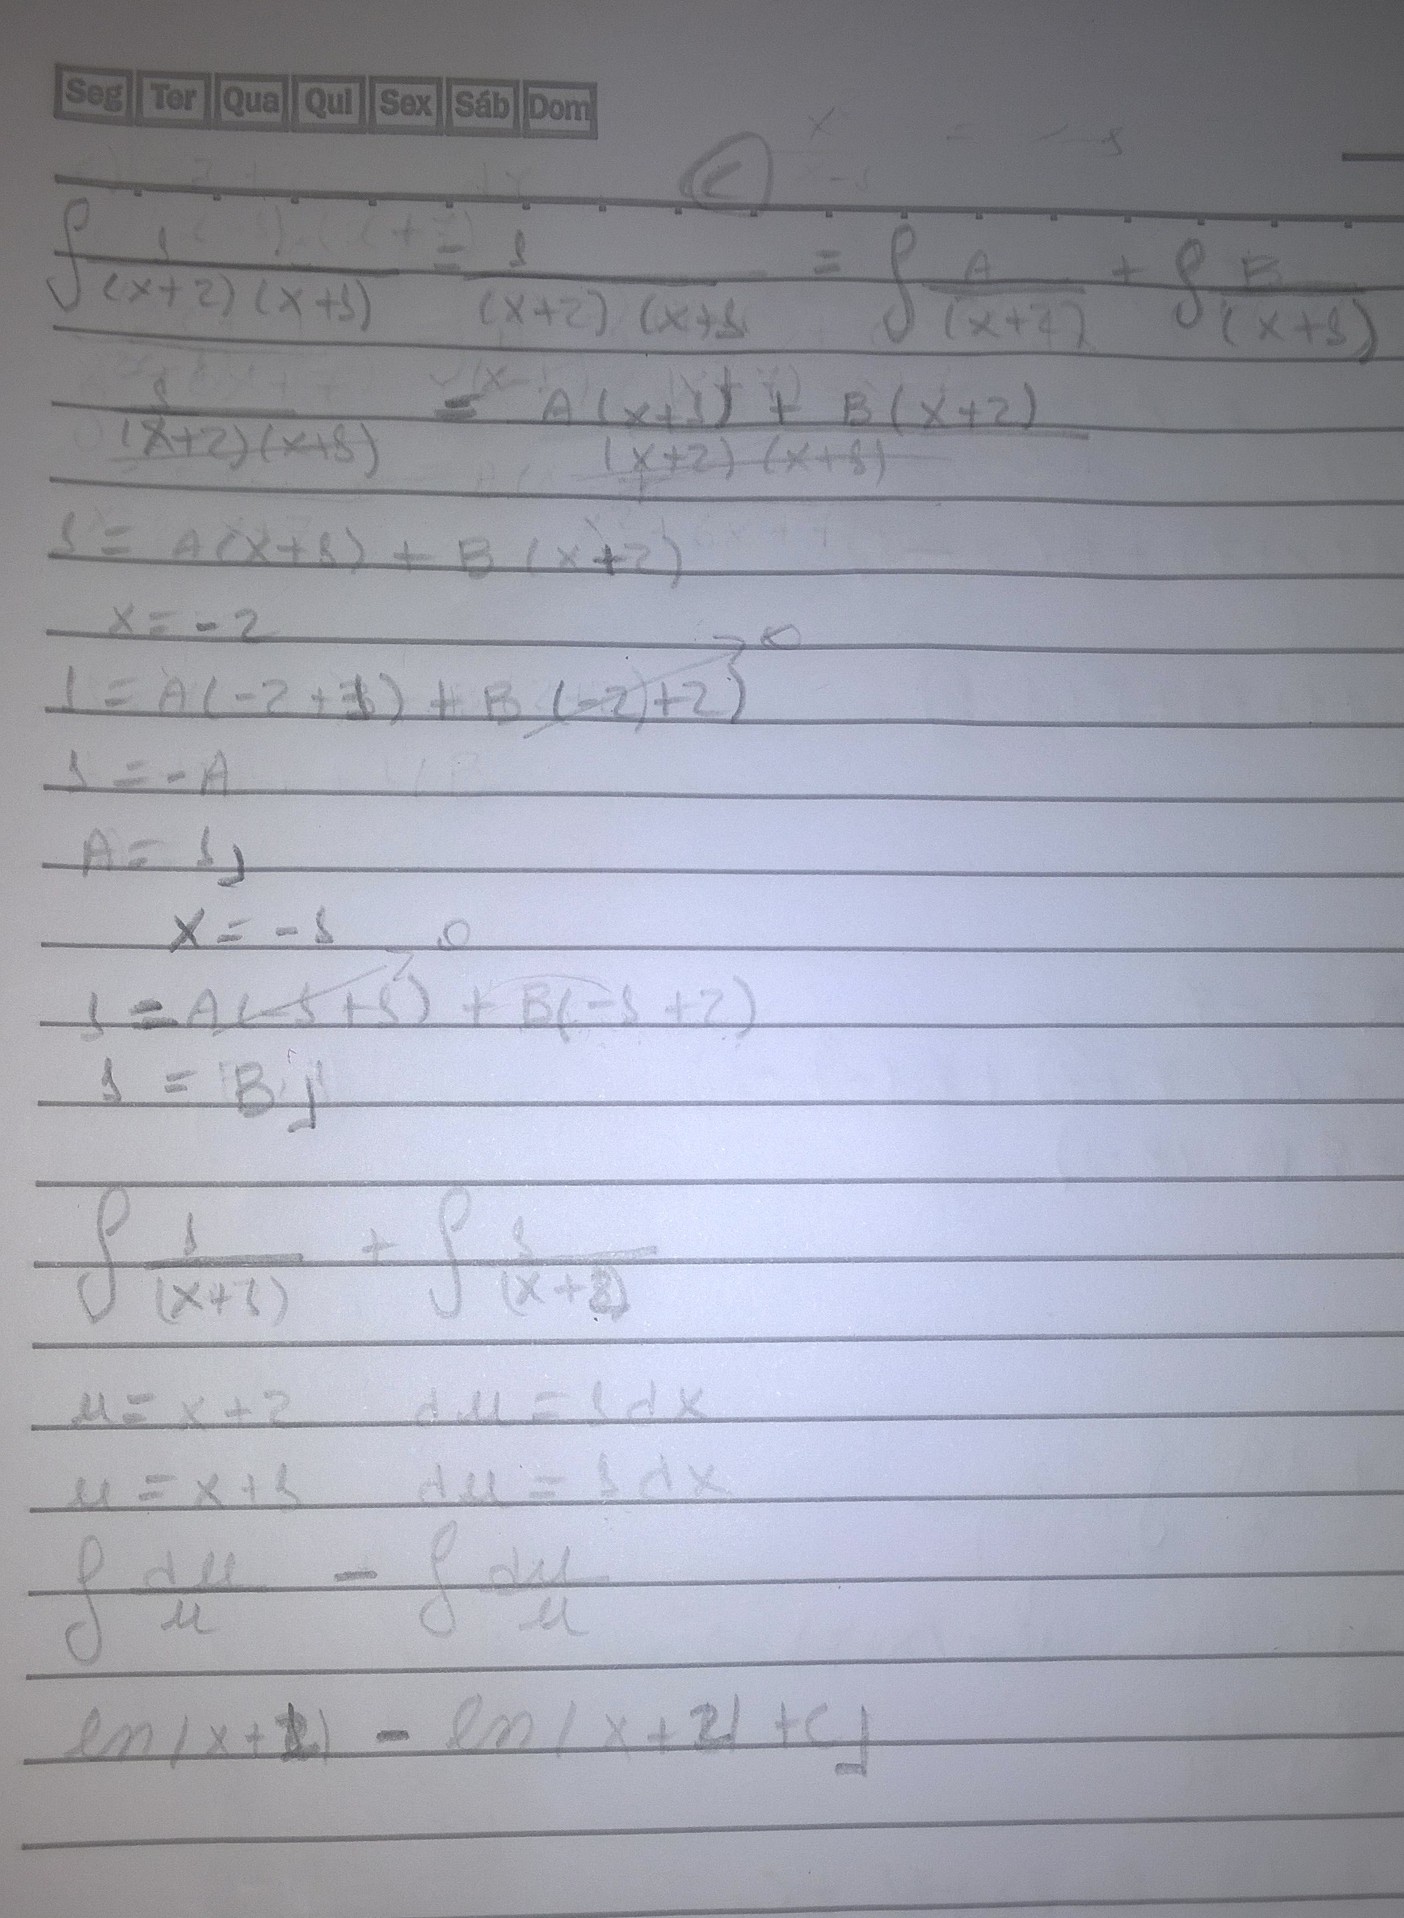 Seg Ter Qua Qui Sex Sáb Dom
C
∫ 1/((x+2)(x+1)) = 1/((x+2)(x+1 = ∫ A/(x+2) + ∫ B/(x+1)
1/((x+2)(x+1)) = (A(x+1) + B(x+2))/((x+2)(x+1))
1 = A(x+1) + B(x+2)
x = -2
1 = A(-2+1) + B(-2)+2) → 0
1 = -A
A = 1
x = -1
1 = A(-1+1) → 0 + B(-1+2)
1 = B
∫ 1/(x+1) + ∫ 1/(x+2)
u = x+2 du = 1dx
u = x+1 du = 1dx
∫ du/u - ∫ du/u
ln|x+1| - ln|x+2| + c